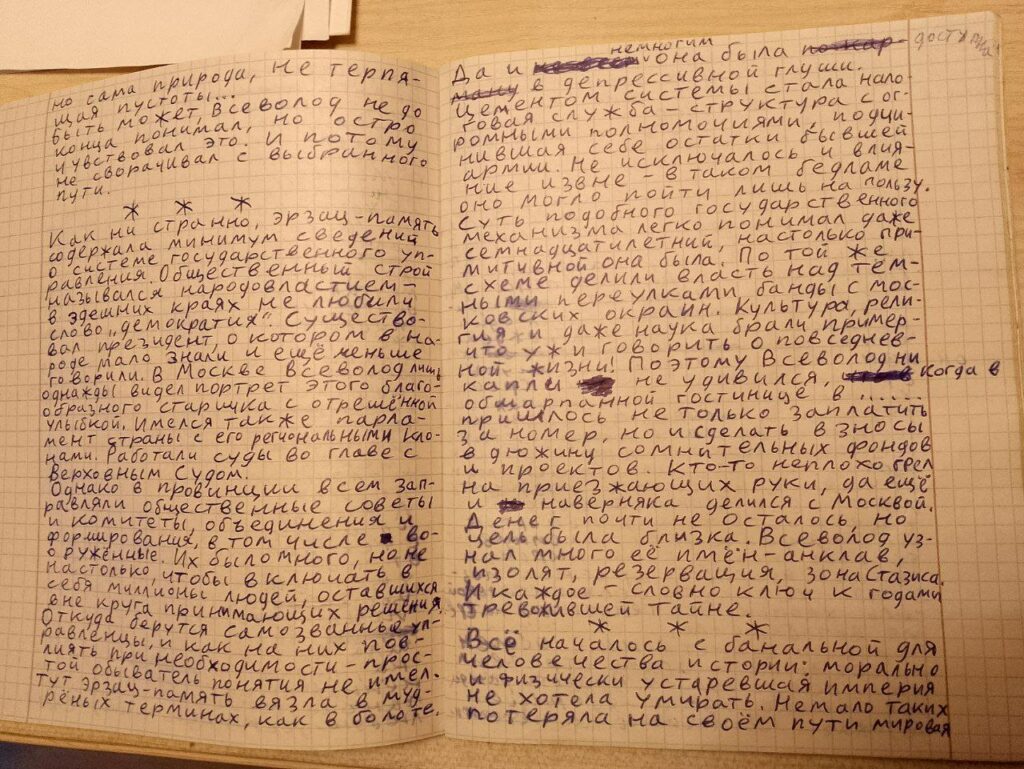 но сама природа, не терпя-
щая пустоты...
Быть может, Всеволод не до
конца понимал, но остро
чувствовал это. И потому
не сворачивал с выбранного
пути.
* * *
Как ни странно, эрзац-память
содержала минимум сведений
о системе государственного уп-
равления. Общественный строй
назывался народовластием-
в здешних краях не любили
слово „демократия". Существо-
вал президент, о котором в на-
роде мало знали и ещё меньше
говорили. В Москве Всеволод лишь
однажды видел портрет этого благо-
образного старичка с отрешённой
улыбкой. Имелся также парла-
мент страны с его региональными кло-
нами. Работали суды во главе с
Верховным Судом.
Однако в провинции всем зап-
равляли общественные советы
и комитеты, объединения и
формирования, в том числе во-
оружённые. Их было много, но не
настолько, чтобы включать в
себя миллионы людей, оставшихся
вне круга принимающих решения.
Откуда берутся самозванные уп-
равленцы, и как на них пов-
лиять при необходимости - прос-
той обыватель понятия не имел.
Тут эрзац-память вязла в муд-
рёных терминах, как в болоте.
Да и немногим она была доступна
в депрессивной глуши.
Цементом системы стала нало-
говая служба - структура с ог-
ромными полномочиями, подчи-
нившая себе остатки бывшей
армии. Не исключалось и влия-
ние извне - в таком бедламе
оно могло пойти лишь на пользу.
Суть подобного государственного
механизма легко понимал даже
семнадцатилетний, настолько при-
митивной она была. По той же
схеме делили власть над тём-
ными переулками банды с мос-
ковских окраин. Культура, рели-
гия и даже наука брали пример-
что уж и говорить о повседнев-
ной жизни! Поэтому Всеволод ни
капли не удивился, когда в
обшарпанной гостинице в ......
пришлось не только заплатить
за номер, но и сделать взносы
в дюжину сомнительных фондов
и проектов. Кто-то неплохо грел
на приезжающих руки, да ещё
и наверняка делился с Москвой.
Денег почти не осталось, но
цель была близка. Всеволод уз-
нал много её имён-анклав,
изолят, резервация, зона Стазиса.
И каждое - словно ключ к годами
тревожившей тайне.
* * *
Всё началось с банальной для
человечества истории: морально
и физически устаревшая империя
не хотела умирать. Немало таких
потеряла на своём пути мировая